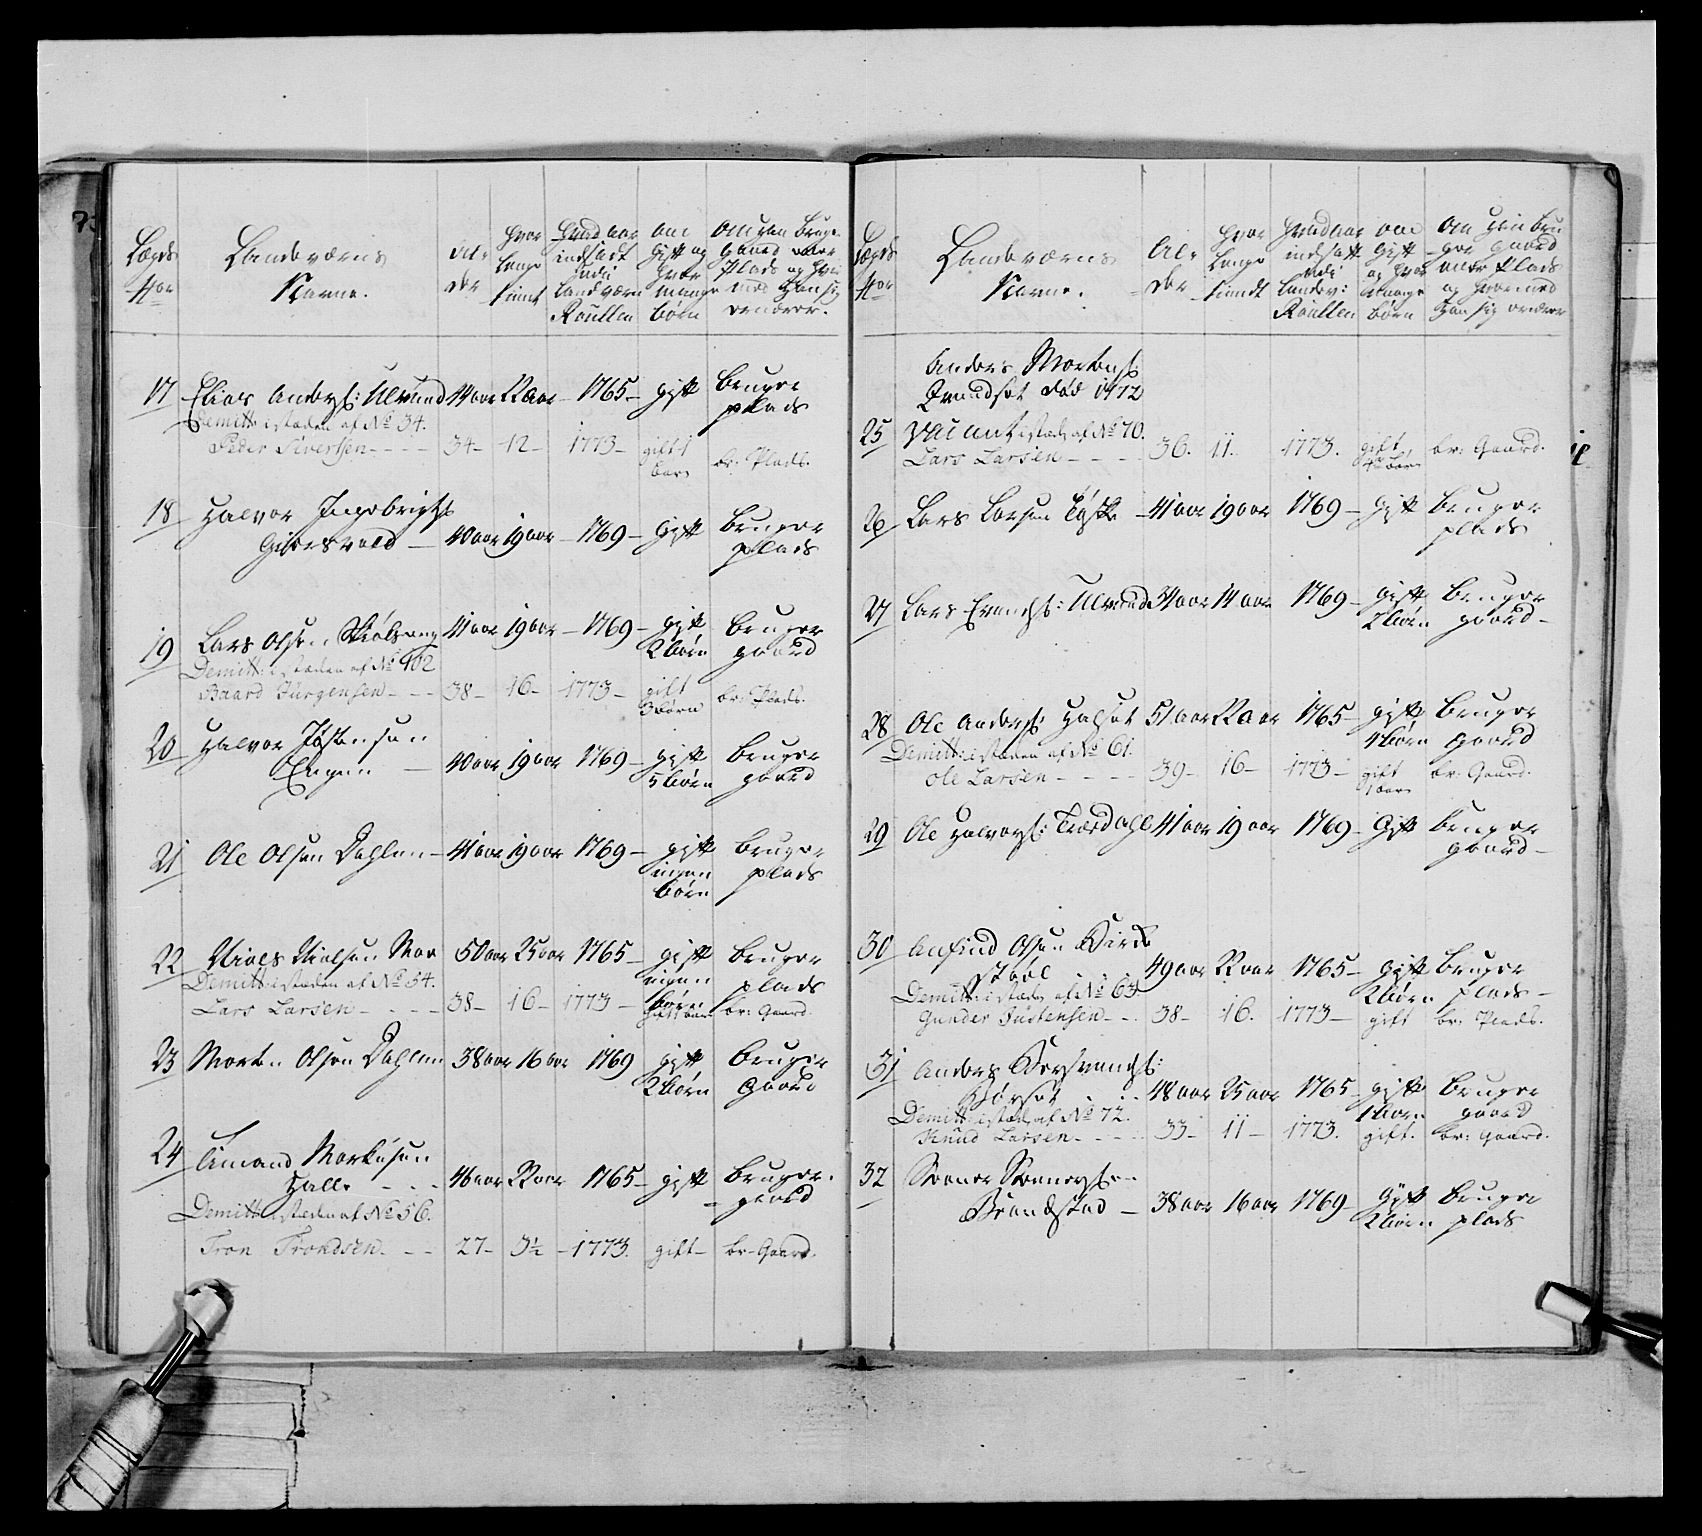 Lægds
Nor
Landeværns
Navne.
Al-
der
hvor
lenge
tiendt
hvad aar
indsadt
udi
Landværn
Roullen
om
gift og
hvor
mange
børn
om han bruger
gaard eller
Plads og hvor
med han sig
ernærer.
17 Elias Anders: Ulvund 44 aar 22 aar - 1765 - gift bruger
plads
Demitt: i stæden af No 34.
Peder Sivertsen - - - 34 - 12 - 1773 - gift 1 br: Plads.
barn
18 Halvor Ingebrigts
40 aar 19 aar - 1769 - gift bruger
plads
19 Lars Olsen 41 aar 19 aar - 1769 - gift bruger
2 børn gaard
Demitt: i stæden af No 102
Baard Jürgensen - - - 38 - 16 - 1773 - gift br: Plads.
3 børn
20 Halvor Jøstensen
Engen - 40 aar 19 aar 1769 - gift bruger
5 børn gaard
21 Ole Olsen Dahlen - 41 aar 19 aar 1769 - gift bruger
ingen plads
børn
22 Niels Nielsen Moe 50 aar 25 aar 1765 - gift bruger
ingen plads
børn
Demitt: i stæden af No 54.
Lars Larsen - - - 38 - 16 - 1773 - gift 1 barn br: Gaard.
23 Morten Olsen Dahlen 38 aar 16 aar 1769 gift bruger
2 børn gaard
24 Amund Markusen
Halle - - - 46 aar 22 aar 1765 - gift bruger
gaard
Demitt: i stæden af No 56.
Tron Trondsen - - - 27 - 3½ - 1773. gift - br: Gaard.
Lægds
Nor
Landeværns
Navne.
Al-
der
hvor
lenge
tiendt
hvad aar
indsatt
udi
Landev:
Roullen
om
gift
og hvor
mange
børn
om han bru-
ger gaard
eller Plads
og hvormed
han sig ernærer
Anders Mortens:
død 1772
25 Vacant i stæd af No 70.
Lars Larsen - - - 36. 11. 1773. gift br: Gaard.
4 børn
26 Lars Larsen - 41 aar 19 aar 1769 - gift bruger
plads
27 Lars Evends: Ulvund 34 aar 14 aar 1769 - gift bruger
2 børn gaard -
28 Ole Anders: Halset 51 aar 22 aar 1765 - gift bruger
4 børn gaard
Demitt: i stæden af No 61.
Ole Larsen - - - 39 - 16 - 1773 - gift br: Gaard.
1 barn
29 Ole Halvors: Tværdahl 41 aar 19 aar 1769 - gift bruger
gaard -
30 Anfind Olsen
49 aar 22 aar 1765 - gift bruger
2 børn plads -
Demitt: i stæden af No 63
Gunder Justensen - - 38 - 16. 1773 - gift br: Plads.
31 Anders
48 aar 25 aar 1765 - gift bruger
1 barn gaard
Demitt: i stæd af No 72.
Knud Larsen - - - 33 - 11 - 1773. gift. br: Gaard.
32
Brandstad - 38 aar 16 aar 1769 - gift bruger
2 børn plads